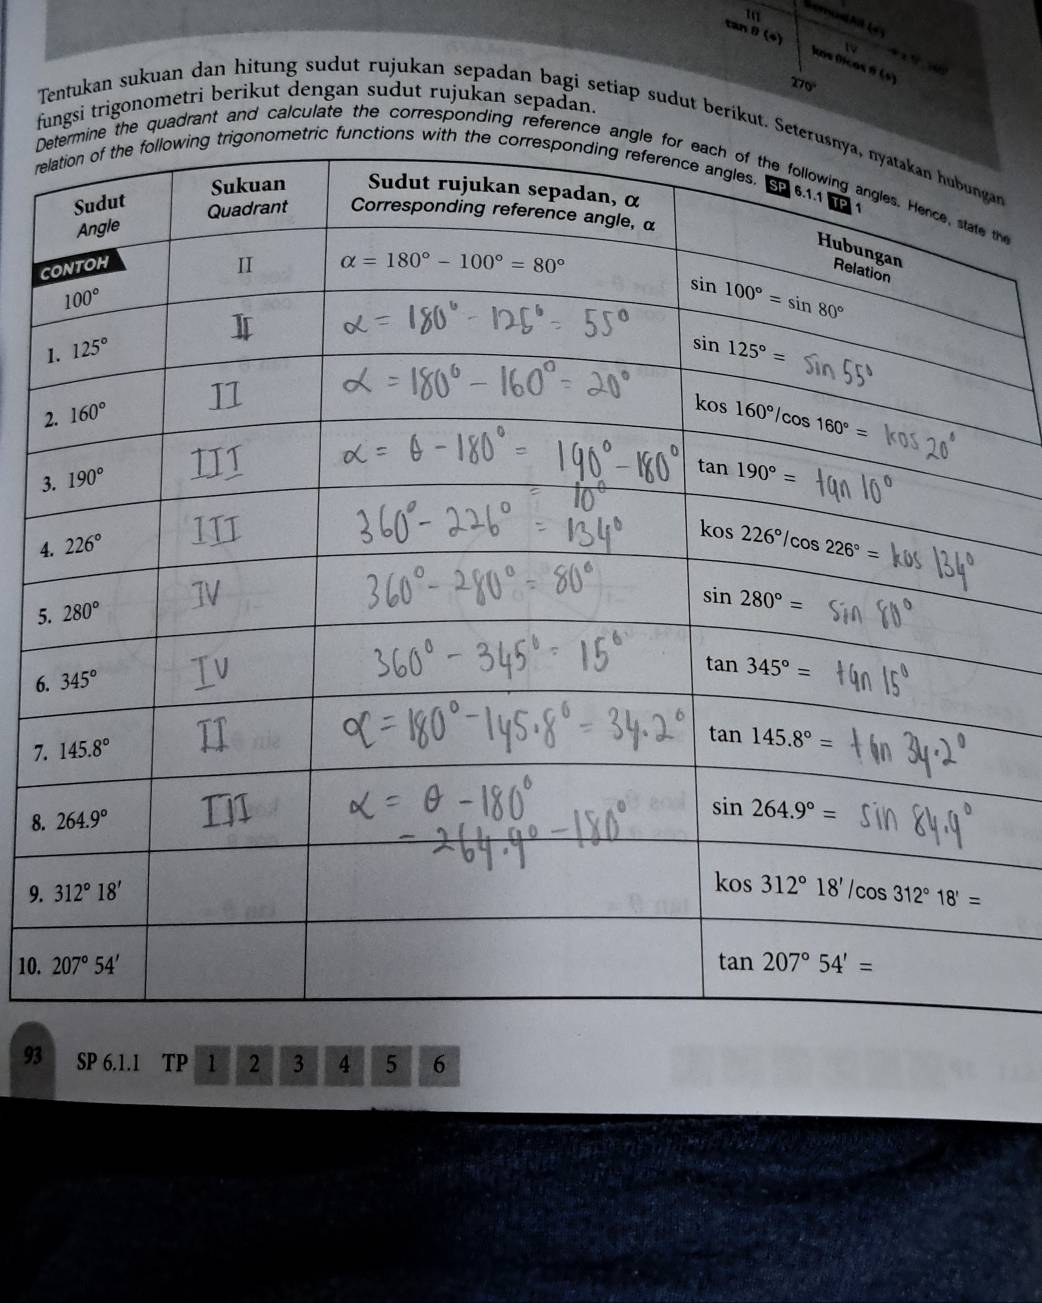 III
tan θ (+)
IV
270°
Tentukan sukuan dan hitung sudut rujukan sepadan bagi setiap sudut berikut. Seterusnya, nyatakan hubungan
fungsi trigonometri berikut dengan sudut rujukan sepadan.
Determine the quadrant and calculate the corresponding reference angle for each of the following angles. Hence, state the
relation of the following trigonometric functions with the corresponding reference angles. SP 6.1.1 TP 1
Sudut
Angle
Sukuan
Quadrant
Sudut rujukan sepadan, α
Corresponding reference angle, α
Hubungan
Relation
CONTOH
100°
II
α = 180° − 100° = 80°
sin 100° = sin 80°
1. 125°
II
α = 180° - 125° = 55°
sin 125° = sin 55°
2. 160°
II
α = 180° - 160° = 20°
kos 160°/cos 160° = kos 20°
3. 190°
III
α = θ - 180° = 190° - 180°
= 10°
tan 190° = tan 10°
4. 226°
III
360° - 226° = 134°
kos 226°/cos 226° = kos 134°
5. 280°
IV
360° - 280° = 80°
sin 280° = sin 80°
6. 345°
IV
360° - 345° = 15°
tan 345° = tan 15°
7. 145.8°
II
α = 180° - 145.8° = 34.2°
tan 145.8° = tan 34.2°
8. 264.9°
III
α = θ - 180°
= 264.9° - 180°
sin 264.9° = sin 84.9°
9. 312° 18′
kos 312° 18′/cos 312° 18′ =
10. 207° 54′
tan 207° 54′ =
93 SP 6.1.1 TP 1 2 3 4 5 6